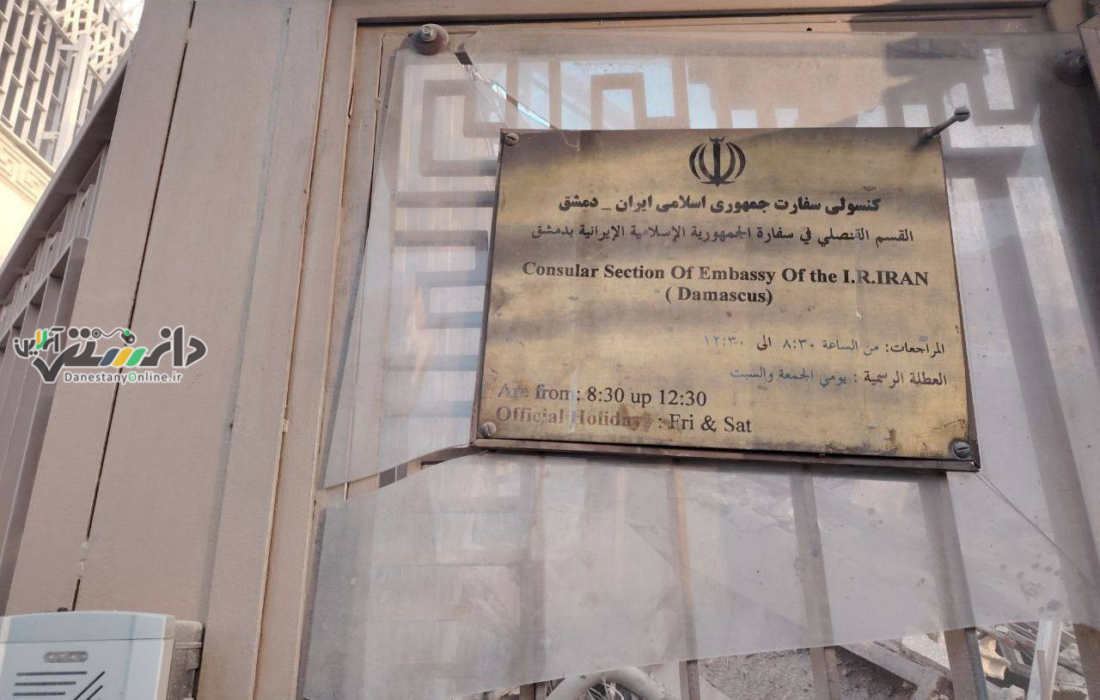 کنسولی سفارت جمهوری اسلامی ایران _ دمشق
القسم القنصلي في سفارة الجمهورية الإسلامية الإيرانية بدمشق
Consular Section Of Embassy Of the I.R.IRAN
( Damascus)
المراجعات: من الساعة ٨:٣٠ الى ١٢:٣٠
العطلة الرسمية : يومي الجمعة والسبت
Are from: 8:30 up 12:30
Official Holiday : Fri & Sat
دانستنی آنلاین
DanestanyOnline.ir